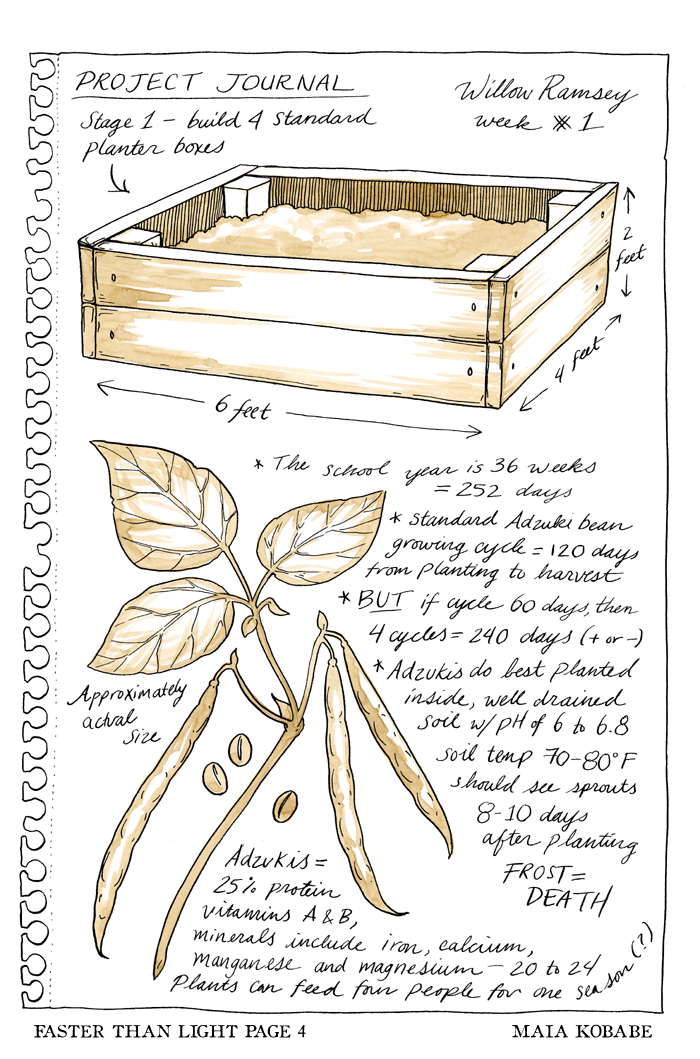 PROJECT JOURNAL
Willow Ramsey
week #1
Stage 1 - build 4 standard
planter boxes
2
feet
4 feet
6 feet
* The school year is 36 weeks
= 252 days
* standard Adzuki bean
growing cycle = 120 days
from planting to harvest
* BUT if cycle 60 days, then
4 cycles = 240 days (+ or -)
* Adzukis do best planted
inside, well drained
soil w/ pH of 6 to 6.8
soil temp 70-80°F
should see sprouts
8-10 days
after planting
FROST =
DEATH
Approximately
actual
size
Adzukis =
25% protein
vitamins A & B,
minerals include iron, calcium,
manganese and magnesium - 20 to 24
Plants can feed four people for one season (?)
FASTER THAN LIGHT PAGE 4
MAIA KOBABE